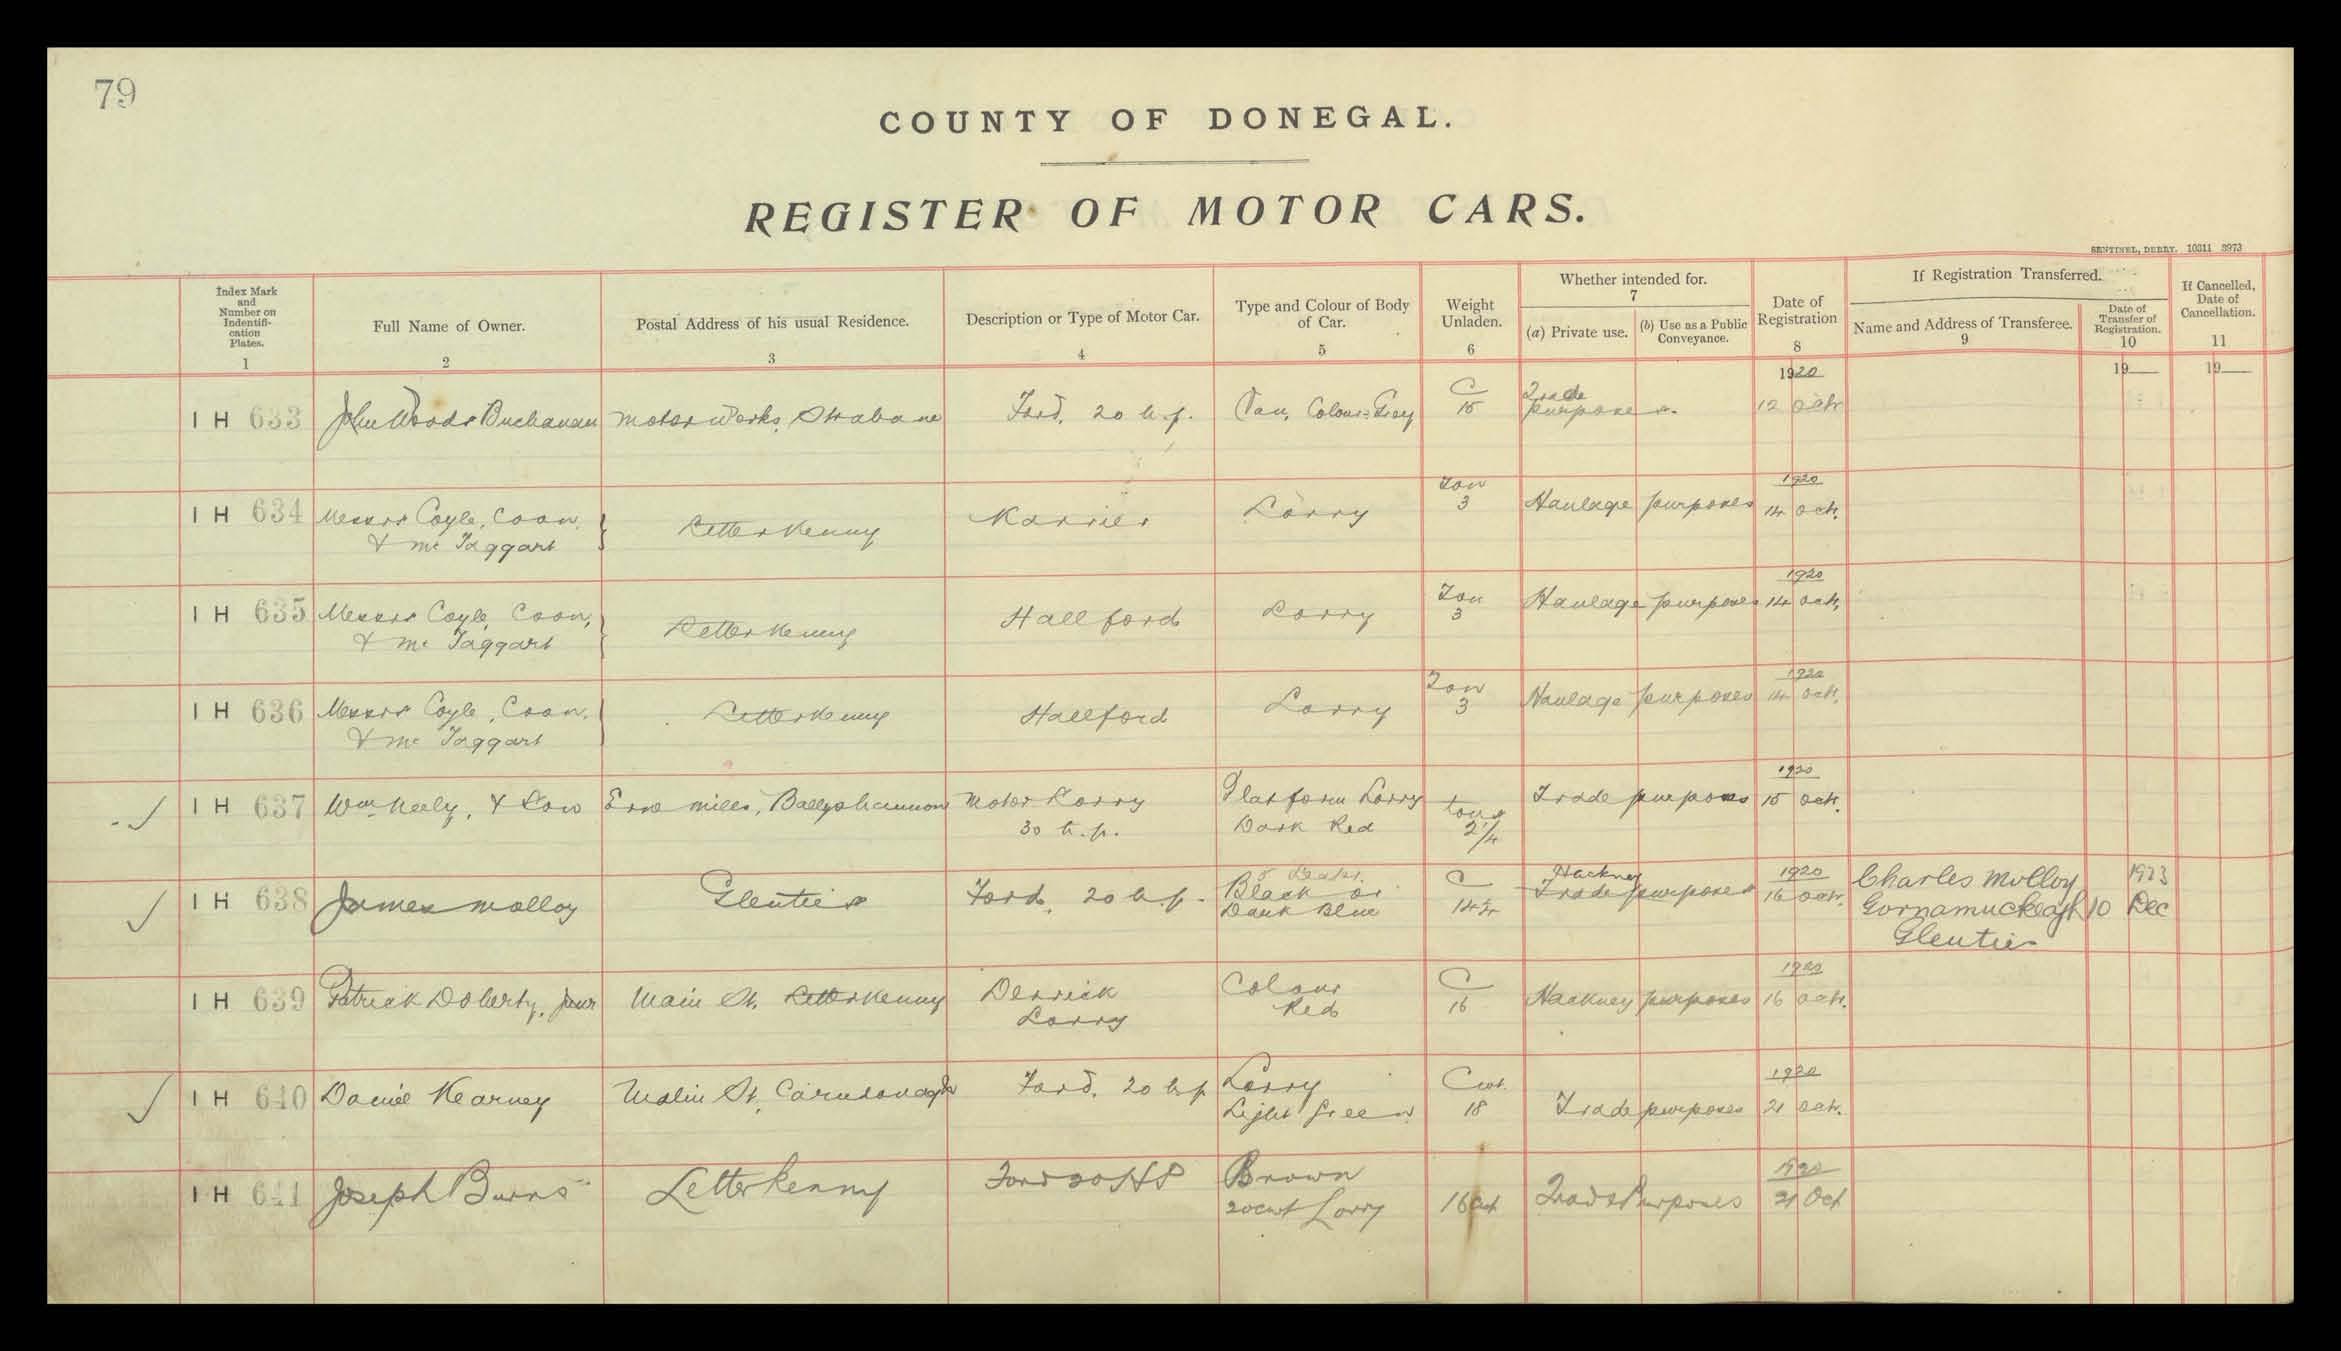 79
COUNTY OF DONEGAL.
REGISTER OF MOTOR CARS.
SENTINEL, DERRY. 10311 3973
Index Mark and Number on Indentifi-cation Plates. 1
Full Name of Owner. 2
Postal Address of his usual Residence. 3
Description or Type of Motor Car. 4
Type and Colour of Body of Car. 5
Weight Unladen. 6
Whether intended for. 7
(a) Private use.
(b) Use as a Public Conveyance.
Date of Registration 8
If Registration Transferred.
Name and Address of Transferee. 9
Date of Transfer of Registration. 10
If Cancelled, Date of Cancellation. 11
1920 19 19
I H 633 John Woods Buchanan Motor Works, Strabane Ford, 20 h.p. Van, Colour: Grey C 15 Trade purposes. 12 Oct.
1920
I H 634 Messrs Coyle, Coon, Letterkenny Karrier Lorry Ton 3 Haulage purposes 14 Oct.
& Mc Taggart
1920
I H 635 Messrs Coyle, Coon, Letterkenny Hallford Lorry Ton 3 Haulage purposes 14 Oct.
& Mc Taggart
1920
I H 636 Messrs Coyle, Coon, Letterkenny Hallford Lorry Ton 3 Haulage purposes 14 Oct.
& Mc Taggart
1920
I H 637 Wm Neely, & Son Erne Mills, Ballyshannon Motor Lorry Platform Lorry tons Trade purposes 15 Oct.
30 h.p. Dark Red 2 1/4
5 Seater. Hackney 1920 Charles Molloy 1923
I H 638 James Molloy Glenties Ford, 20 h.p. Black or C Trade purposes 16 Oct. Gornamuckeagh 10 Dec
Dark Blue 14 Glenties
1920
I H 639 Patrick Doherty, Junr Main St. Letterkenny Derrick Colour C Hackney purposes 16 Oct.
Lorry Red 16
1920
I H 640 Daniel Kearney Malin St, Carndonagh Ford, 20 h.p Lorry Cwt. Trade purposes 21 Oct.
Light Green 18
1920
I H 641 Joseph Burns Letterkenny Ford 20 HP Brown 16 cwt Trade Purposes 21 Oct
20 cwt Lorry